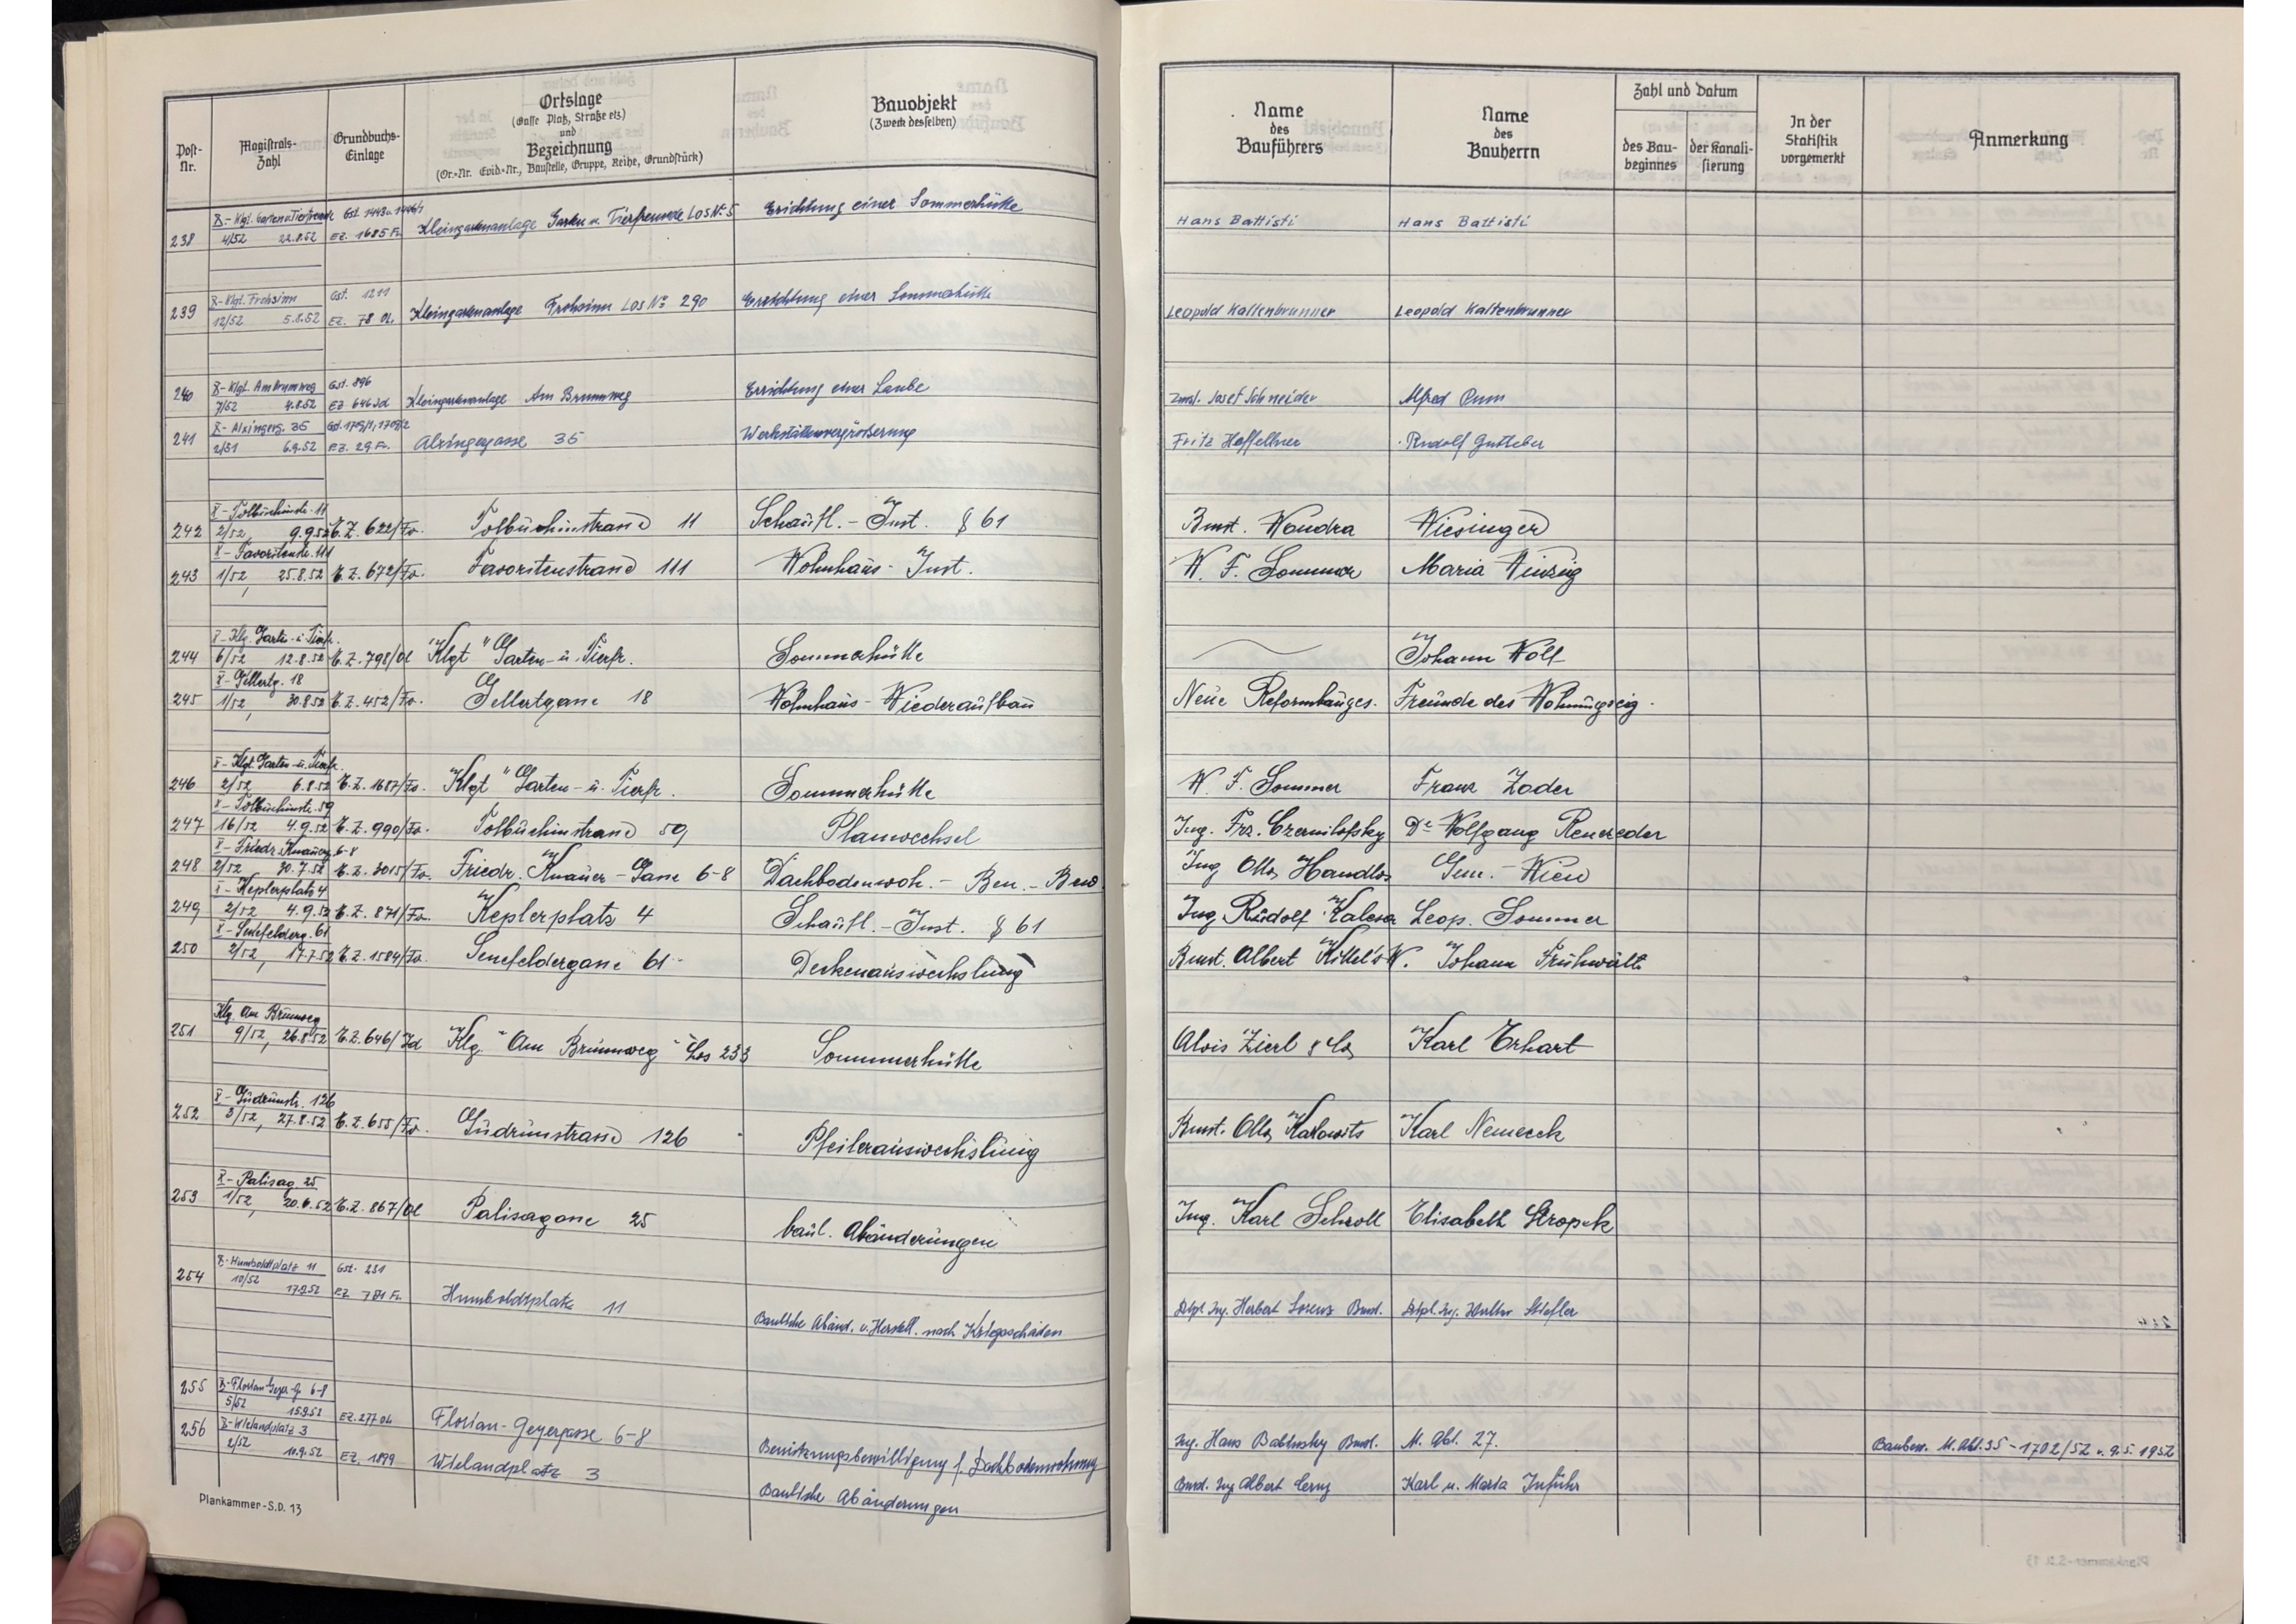 Post-Nr.
Magistrats-Zahl
Grundbuchs-Einlage
Ortslage
(Gasse Platz, Straße etz.)
und
Bezeichnung
(Or.-Nr. Evid.-Nr., Baustelle, Gruppe, Reihe, Grundstück)
Bauobjekt
(Zweck desselben)
Name
des
Bauführers
Name
des
Bauherrn
Zahl und Datum
des Bau-
beginnes
der Kanali-
sierung
In der
Statistik
vorgemerkt
Anmerkung
Gst. 1443 u. 1446/1
238 4/52 22.8.52 EZ. 1685 Fv. Kleingartenanlage Garten u. Tierfreunde LOS No 5 Errichtung einer Sommerhütte Hans Battisti Hans Battisti
X-Klgt. Frohsinn Gst. 1211
239 12/52 5.8.52 EZ. 78 OL. Kleingartenanlage Frohsinn LOS No 290 Errichtung einer Sommerhütte Leopold Kaltenbrunner Leopold Kaltenbrunner
X-Klgt. Am Brunnweg Gst. 896
240 7/52 4.8.52 EZ 646 Jd Kleingartenanlage Am Brunnweg Errichtung einer Laube Zmst. Josef Schneider Alfred
X-Alxingerg. 35 Gst. 1709/1, 1709/2
241 2/51 6.9.52 EZ. 29 Fv. Alxingergasse 35 Werkstättenvergrößerung Fritz Haffellner Rudolf
X-Tolbuchinstr. 11
242 2/52, 9.9.52 E.Z. 622/Fv. Tolbuchinstrasse 11 Schaufl.-Inst. § 61 Bmst. Wondra Wiesinger
X-Favoritenstr. 111
243 1/52, 25.8.52 E.Z. 672/Fv. Favoritenstrasse 111 Wohnhaus-Inst. W. F. Sommer Maria Winzig
X-Klg. Garten-u. Tierfr.
244 6/52 12.8.52 E.Z. 798/Ol Klgt "Garten-u. Tierfr. Sommerhütte Johann Wolf
X-Gellertg. 18
245 1/52, 30.8.52 E.Z. 452/Fv. Gellertgasse 18 Wohnhaus-Wiederaufbau Neue Reformbauges. Freunde des Wohnungseig.
X-Klgt. Garten-u. Tierfr.
246 2/52 6.8.52 E.Z. 1687/Fv. Klgt "Garten-u. Tierfr. Sommerhütte W. F. Sommer Franz Zoder
X-Tolbuchinstr. 59
247 16/52 4.9.52 E.Z. 990/Fv. Tolbuchinstrasse 59 Planwechsel Ing. Frz. Czernilofsky Dr Wolfgang
X-Friedr. Knauerg. 6-8
248 2/52, 30.7.52 E.Z. 3015/Fv. Friedr. Knauer-Gasse 6-8 Dachbodenwoh.-Ben.-Bew. Ing Otto Handlos Gem.-Wien
X-Keplerplatz 4
249 2/52 4.9.52 E.Z. 871/Fv. Keplerplatz 4 Schaufl.-Inst. § 61 Ing. Rudolf Kalesa Leop. Sommer
X-Senefelderg. 61
250 2/52, 17.7.52 E.Z. 1584/Fv. Senefeldergasse 61 Deckenauswechslung Bmst. Albert Kittel's W. Johann Frühwirth
Klg. Am Brunnweg
251 9/52, 26.8.52 E.Z. 646/Jd Klg. "Am Brunnweg" Los 233 Sommerhütte Alois Zierl & Co Karl Erhart
X-Gudrunstr. 126
252 3/52, 27.8.52 E.Z. 655/Fv. Gudrunstrasse 126 Pfeilerauswechslung Bmst. Otto Karl Nemecek
X-Palisag. 25
253 1/52, 20.6.52 E.Z. 867/Ol Palisagasse 25 baul. Abänderungen Ing. Karl Schroll Elisabeth Stropek
X-Humboldtplatz 11 Gst. 251
254 10/52 17.9.52 Humboldtplatz 11 Bauliche Abänd. u. Herstell. nach Kriegsschäden Dipl. Ing. Herbert Lorenz Bmst. Dipl. Ing. Walter Stiefler
255 X-Florian Geyer-G. 6-8
5/52 15.9.52 EZ. 277 OL Florian-Geyergasse 6-8 Benützungsbewilligung f. Dachbodenwohnung Ing. Hans Bmst. M. Abt. 27. Baubew. M. Abt. 35-1702/52 v. 9.5.1952
256 X-Wielandplatz 3
2/52 10.9.52 EZ. 1899 Wielandplatz 3 Bauliche Abänderungen Bmst. Ing Albert Cerny Karl u. Maria Inführ
Plankammer-S.D. 13